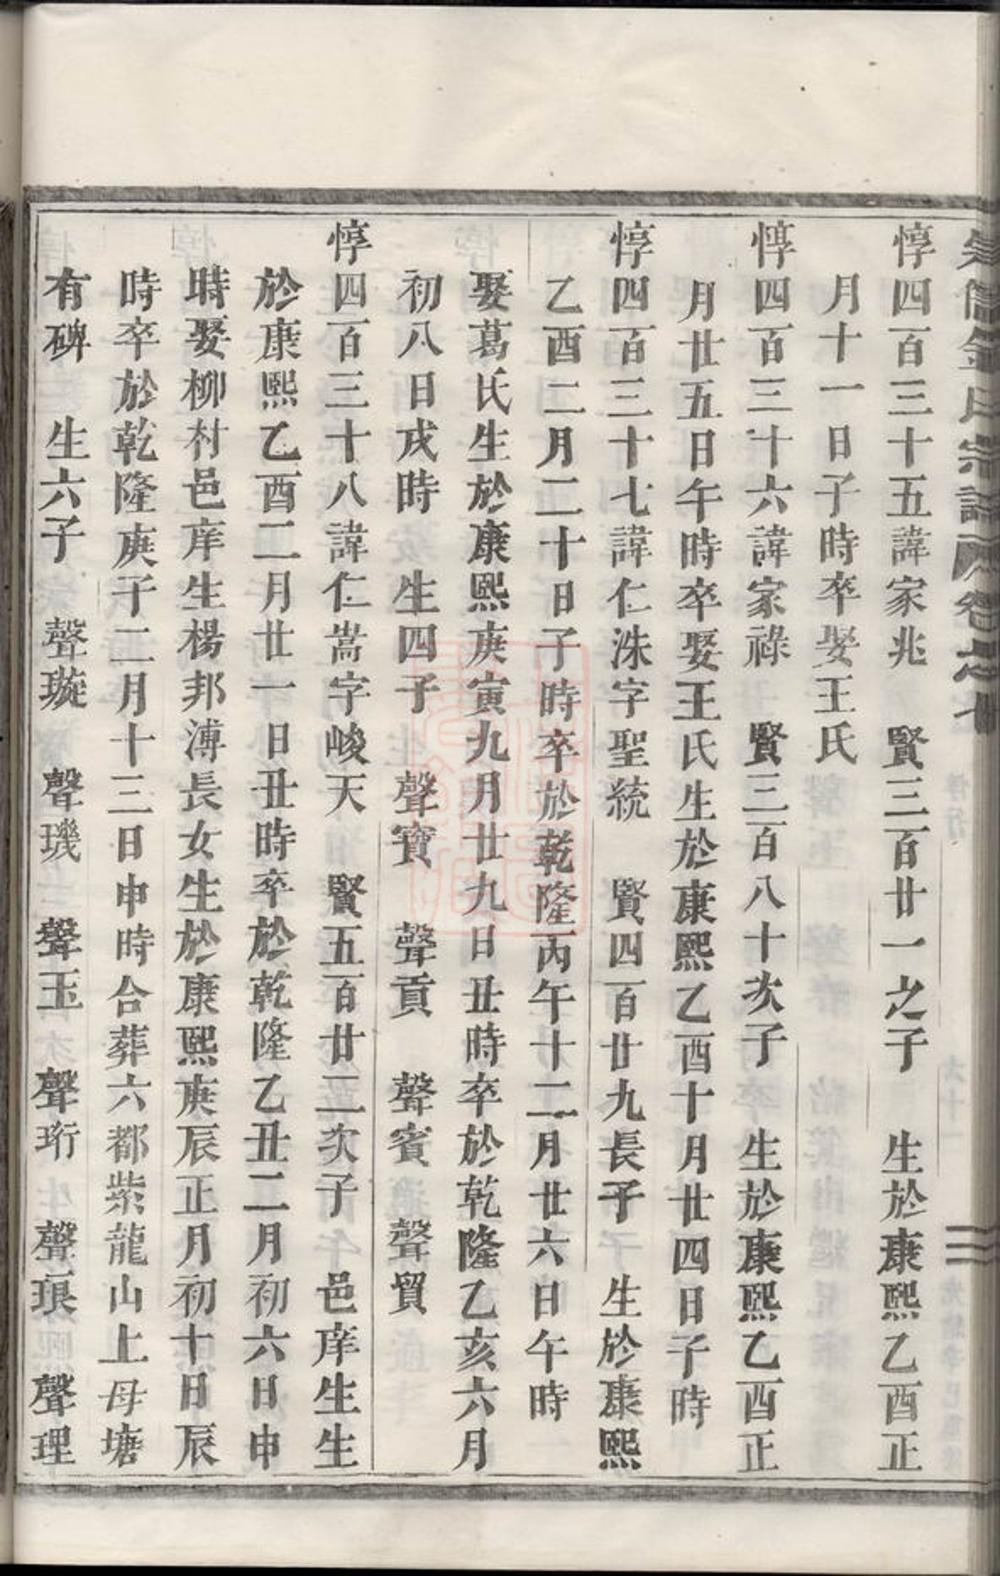 惇四百三十五諱家兆　賢三百廿一之子　生於康熙乙酉正
月十一日子時卒娶王氏
惇四百三十六諱家祿　賢三百八十次子　生於康熙乙酉正
月廿五日午時卒娶王氏生於康熙乙酉十月廿四日子時
惇四百三十七諱仁洙字聖統　賢四百廿九長子　生於康熙
乙酉二月二十日子時卒於乾隆丙午十二月廿六日午時
娶葛氏生於康熙庚寅九月廿九日丑時卒於乾隆乙亥六月
初八日戌時　生四子　聲寶　聲貢　聲賓　聲貿
惇四百三十八諱仁嵩字峻天　賢五百廿二次子　邑庠生生
於康熙乙酉二月廿一日丑時卒於乾隆乙丑二月初六日申
時娶柳村邑庠生楊邦溥長女生於康熙庚辰正月初十日辰
時卒於乾隆庚子二月十三日申時合葬六都紫龍山上母塘
有碑　生六子　聲璇　聲璣　聲玉　聲珩　聲琅　聲理